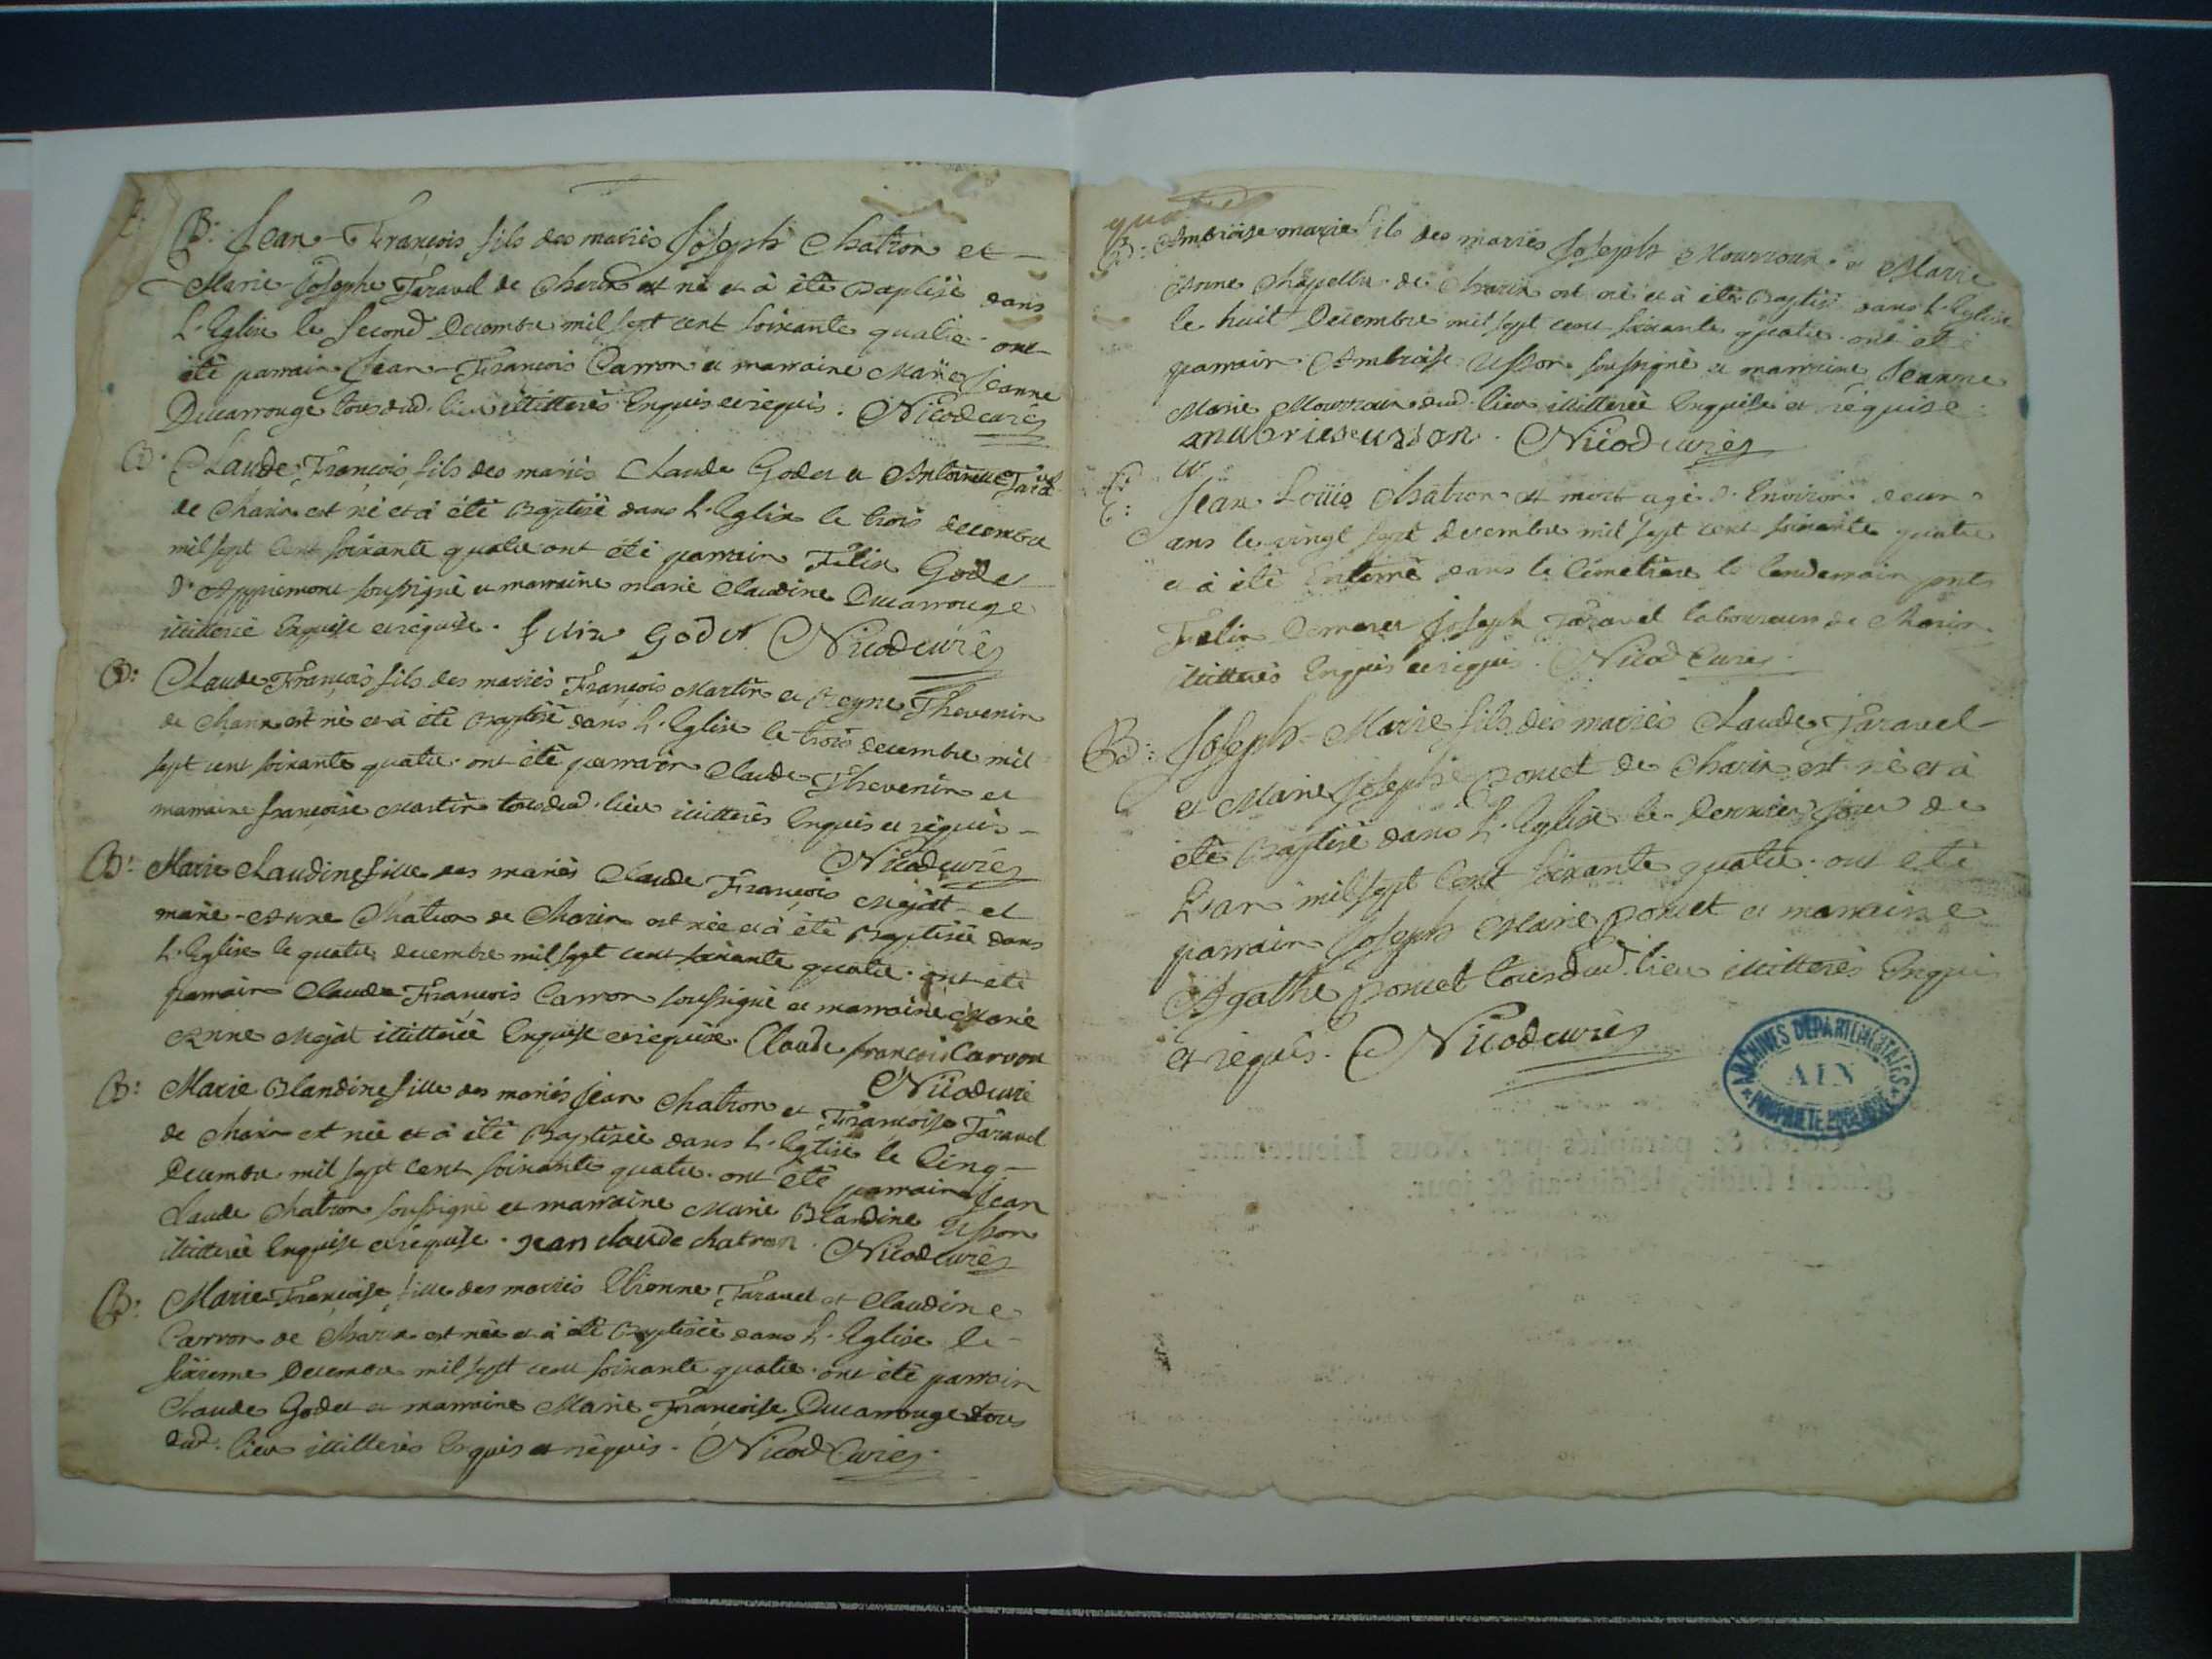 B: Jean-François fils des mariès Joseph Chatron et
Marie-Josephe Taravel de Charix est né et à été Baptisé dans
L'Eglise le second Decembre mil sept cent soixante quatre ont
été parrain Jean-François Carron et marraine Marie Jeanne
Ducarrouge tous dud. lieu illitterés Enquis et requis. Nicod curé
B: Claude-François fils des mariès Claude Godet et Antoinette
de Charix est né et à été Baptisé dans L'Eglise le trois decembre
mil sept cent soixante quatre ont été parrain Felix Godet
D'Appremont soussigné et marraine marie Claudine Ducarrouge
illitterée Enquise et requise. felix Godet Nicod curé
B: Claude François fils des mariès François Martin et Reyne Thevenin
de Charix est né et à été Baptisé dans L'Eglise le trois decembre mil
sept cent soixante quatre. ont été parrain Claude Thevenin et
marraine françoise Martin tous dud. lieu illitterés Enquis et requis
Nicod curé
B: Marie Claudine fille des mariès Claude François Mejat et
marie-Anne Chatron de Charix est née et à été Baptisée dans
L'Eglise le quatre decembre mil sept cent soixante quatre. ont été
parrain Claude François Carron soussigné et marraine Marie
Anne Mejat illitterée Enquise et requise. Claude françois Carron
Nicod curé
B: Marie Blandine fille des mariès Jean Chatron et Françoise Taravel
de Charix est née et à été Baptisée dans L'Eglise le Cinq
Decembre mil sept cent soixante quatre. ont été parrain Jean
Claude Chatron soussigné et marraine Marie Blandine Usson
illitterée Enquise et requise. jean claude chatron Nicod curé
B: Marie Françoise fille des mariès Etienne Taravel et Claudine
Carron de Charix est née et à été Baptisée dans L'Eglise le
sixieme Decembre mil sept cent soixante quatre. ont été parrain
Claude Godet et marraine Marie Françoise Ducarrouge tous
dud. lieu illitterés Enquis et requis. Nicod Curé
B: Ambroise marie fils des mariès Joseph Mourroux et Marie
Anne Chapellu de Charix est né et à été Baptisé dans L'Eglise
le huit Decembre mil sept cent soixante quatre. ont été
parrain Ambroise Usson soussigné et marraine Jeanne
Marie Mourroux dud. lieu illitterée Enquise et requise.
Nicod curé
Jean Louis Chatron est mort agé d'Environ deux
ans le vingt sept decembre mil sept cent soixante quatre
et à été Enterré dans le Cimetière le lendemain pnts
Felix Joseph Taravel laboureurs de Charix
illitterés Enquis et requis. Nicod Curé
B: Joseph-Marie fils des mariès Claude Taravel
et Marie Josephe poncet de Charix est né et à
été Baptisé dans L'Eglise le Dernier jour de
L'an mil sept Cent soixante quatre. ont été
parrain Joseph Marie poncet et marraine
Agathe poncet tous dud. lieu illitterés Enquis
et requis. Nicod curé
ARCHIVES DÉPARTEMENTALES
AIN
PROPRIETE PUBLIQUE